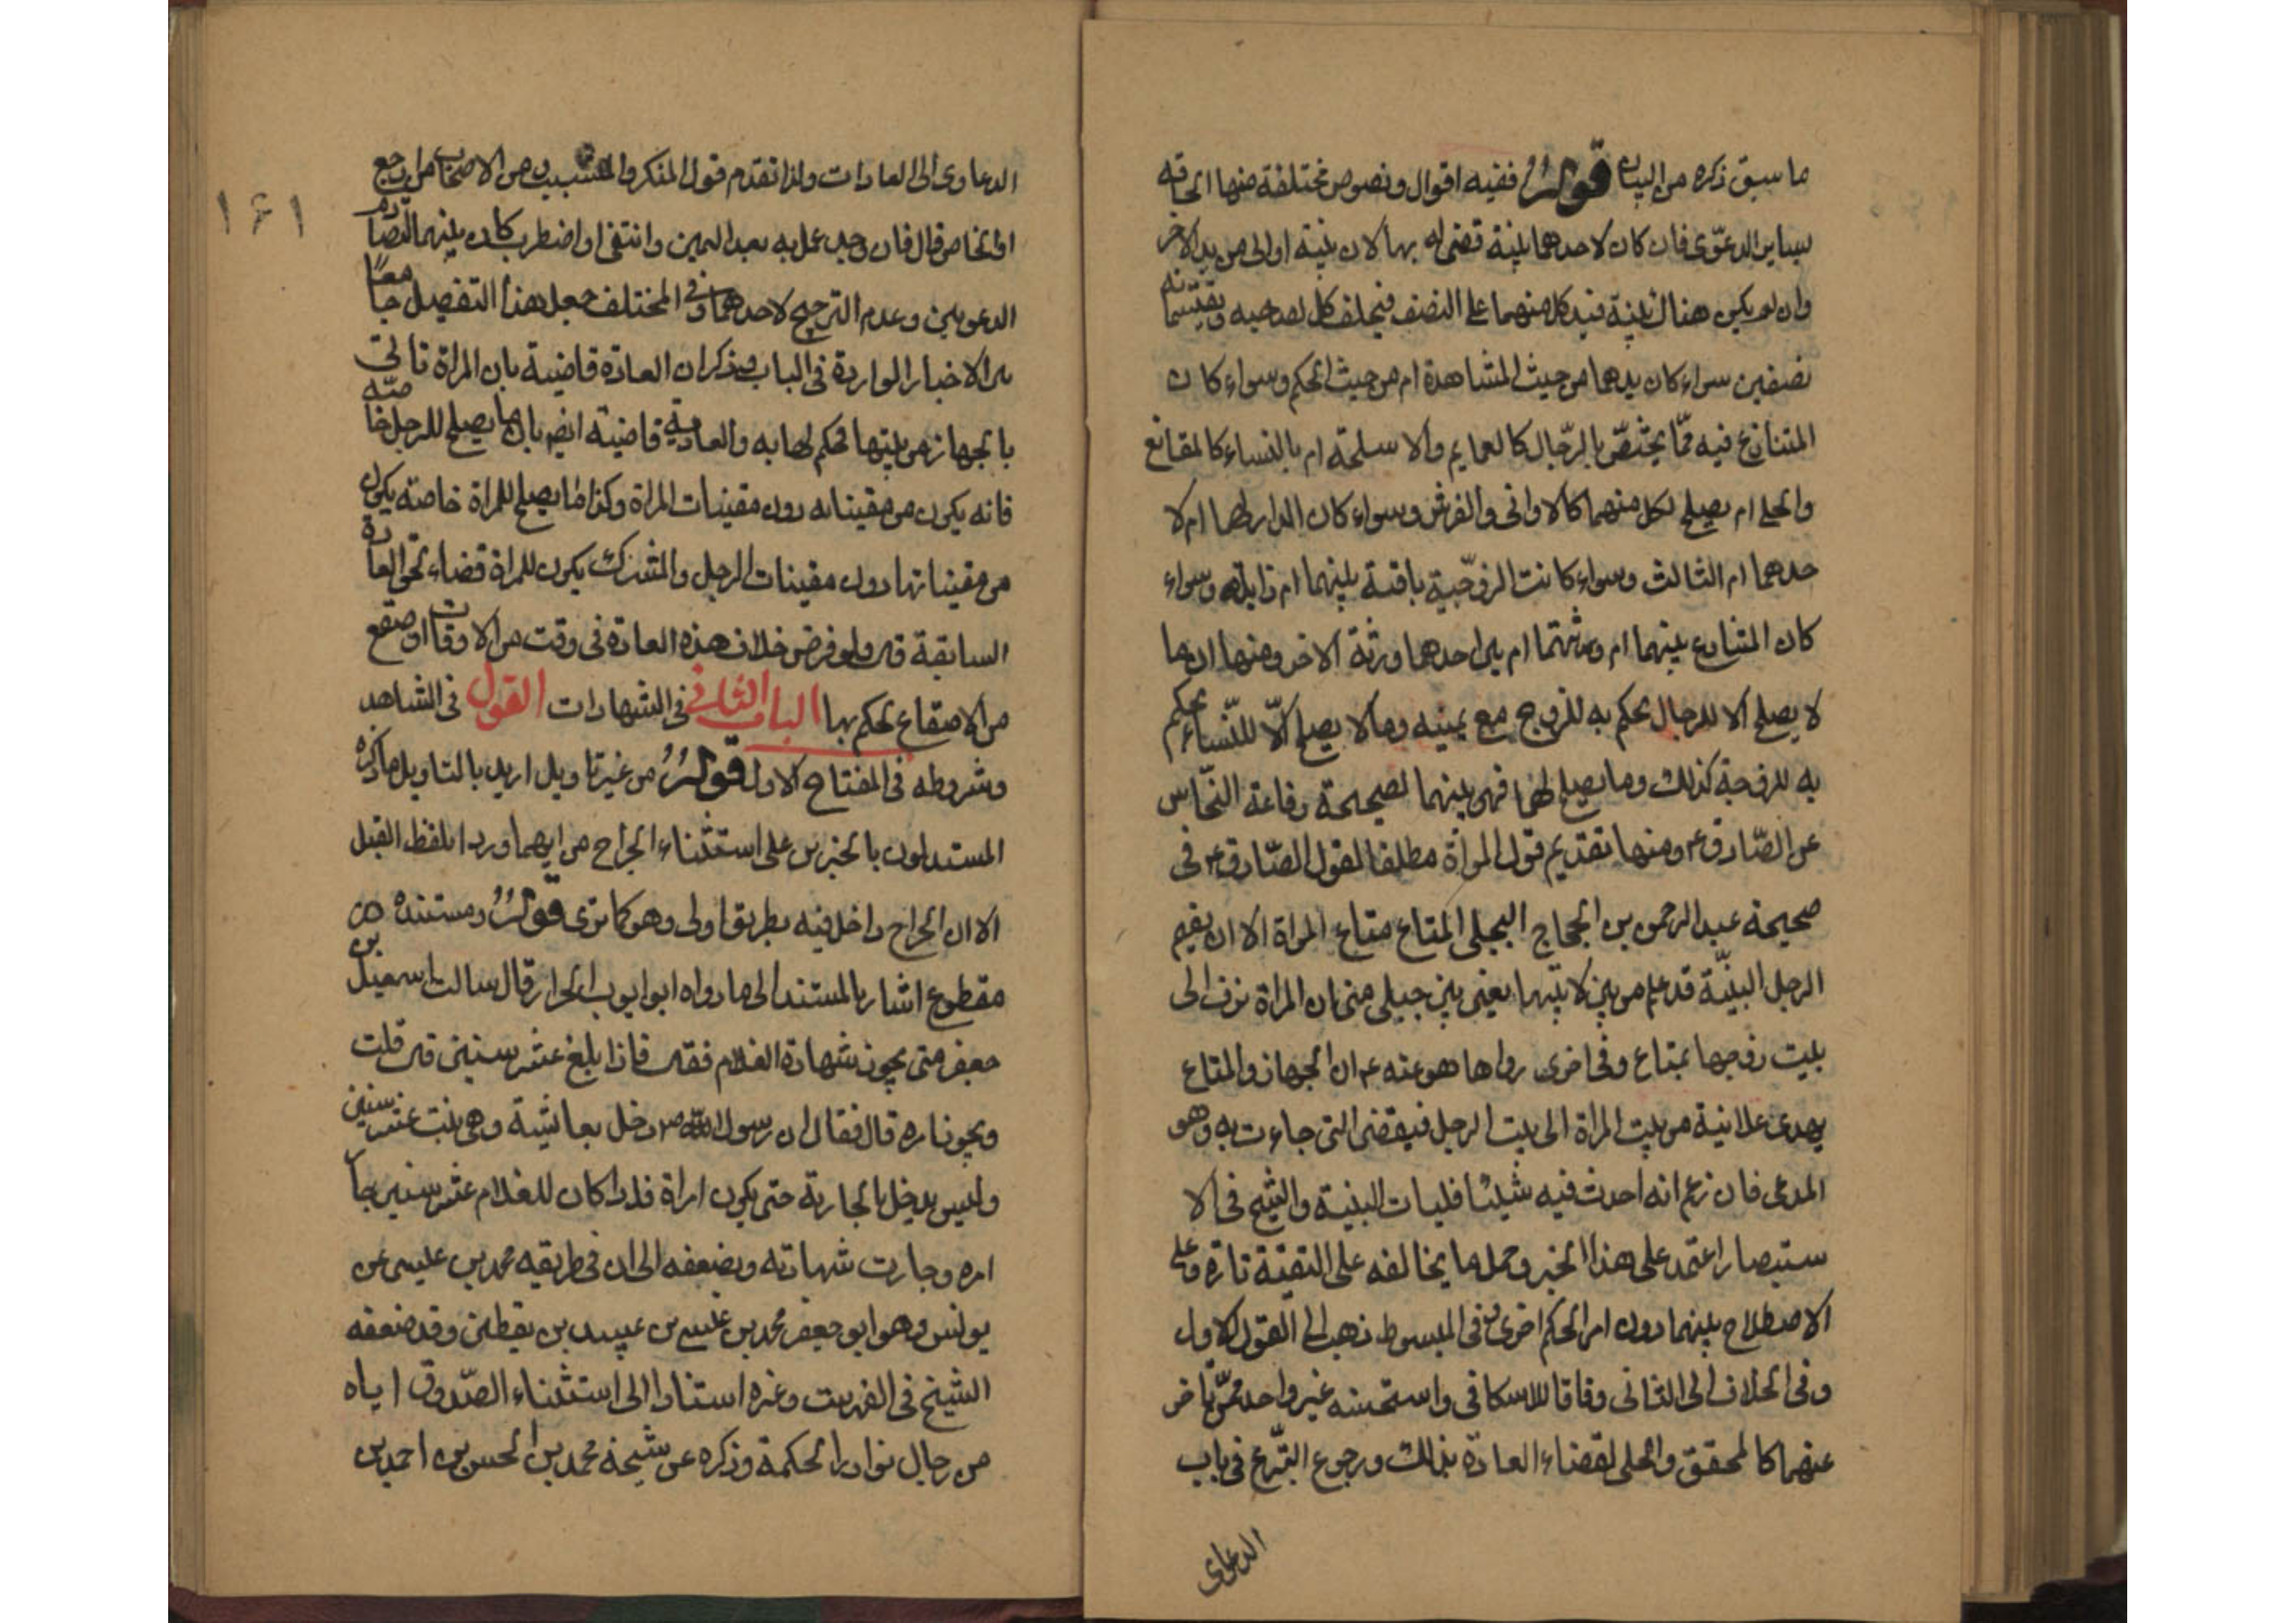 ما سبق ذكره من البيان قوله ففيه اقوال ونصوص مختلفة منها الحاقه
بساير الدعوى فان كان لاحدهما بينة قضى له بها لان بينة اولى من يد الاخر
وان لم يكن هناك بينة فيد كل منهما على النصف فيحلف كل لصاحبه ويقتسمانه
نصفين سواء كان يدهما من حيث المشاهدة ام من حيث الحكم وسواء كان
المتنازع فيه ممّا يختصّ بالرّجال كالعمايم والاسلحة ام بالنساء كالمقانع
والحلي ام يصلح لكل منهما كالاواني والفرش وسواء كان الدار لهما ام لا
حدهما ام الثالث وسواء كانت الزوجية باقية بينهما ام زايلة وسواء
كان المتنازع بينهما ام ورثتهما ام بين احدهما ورثة الاخر ومنها ان ما
لا يصلح الا للرجال يحكم به للزوج مع يمينه وما لا يصلح الّا للنّساء يحكم
به للزوجة كذلك وما يصلح لهما فهو بينهما لصحيحة رفاعة النخّاس
عن الصّادق ع ومنها تقديم قول المراة مطلقا لقول الصّادق ع في
صحيحة عبد الرحمن بن الحجاج البجلي المتاع متاع المراة الا ان يقيم
الرجل البيّنة قد علم من بين لابتيها يعني بين جبلي منى ان المراة تزف الى
بيت زوجها بمتاع وفي اخرى رواها هو عنه ع ان الجهاز والمتاع
يهدى علانية من بيت المراة الى بيت الرجل فيقضى التي جاءت به وهو
المدعى فان زعم انه احدث فيه شيئا فليات البينة والشيخ في الا
ستبصار اعتمد على هذا الخبر وحمل ما يخالفه على التقية تارة وعلى
الاصطلاح بينهما دون امر الحكم اخرى وفي المبسوط ذهب الى القول الاول
وفي الخلاف الى الثاني وفاقا للاسكافي واستحسنه غير واحد ممّن تاخر
عنهما كالمحقق والحلي لقضاء العادة بذلك ورجوع الشّرع في باب
الدعاوى
١٦١
الدعاوى الى العادات ولذا تقدم قول المنكر والمتشبث ومن الاصحاب من ارجع
قال فان وجد عمل به بعد اليمين وانتفى او اضطرب كان بينهما لتصادم
الدعويين وعدم الترجيح لاحدهما وفي المختلف جعل هذا التفصيل جامعًا
بين الاخبار الواردة في الباب وذكر ان العادة قاضية بان المراة تاتي
بالجهاز من بيتها فحكم لها به والعادة قاضية ايضا بان ما يصلح للرجل خاصّة
فانه يكون من مقتنياته دون مقتنيات المراة وكذا ما يصلح للمراة خاصة يكون
من مقتنياتها دون مقتنيات الرجل والمشترك يكون للمراة قضاء لحق العادة
السابقة قال ولو فرض خلاف هذه العادة في وقت من الاوقات او صقع
من الاصقاع لحكم بها الباب الثاني في الشهادات القول في الشاهد
وشروطه في المفتاح الاول قوله من غير تاويل اريد بالتاويل ما ذكره
المستدلون بالخبرين على استثناء الجراح من ايهما وردا بلفظ القتل
الا ان الجراح داخل فيه بطريق اولى وهو كما ترى قوله ومستنده من
مقطوع اشار بالمستند الى ما رواه ابو ايوب الخزاز قال سالت اسمعيل بن
جعفر متى يجوز شهادة الغلام فقال فاذا بلغ عشر سنين قال قلت
ويجوز امره قال فقال ان رسول الله ص دخل بعائشة وهي بنت عشر سنين
وليس يدخل بالجارية حتى يكون امراة فاذا كان للغلام عشر سنين جاز
امره وجازت شهادته ويضعفه الى ان في طريقه محمد بن عيسى عن
يونس وهو ابو جعفر محمد بن عيسى بن عبيد بن يقطين وقد ضعفه
الشيخ في الفهرست وغيره استنادا الى استثناء الصّدوق اياه
من رجال نوادر الحكمة وذكره عن شيخه محمد بن الحسن بن احمد بن